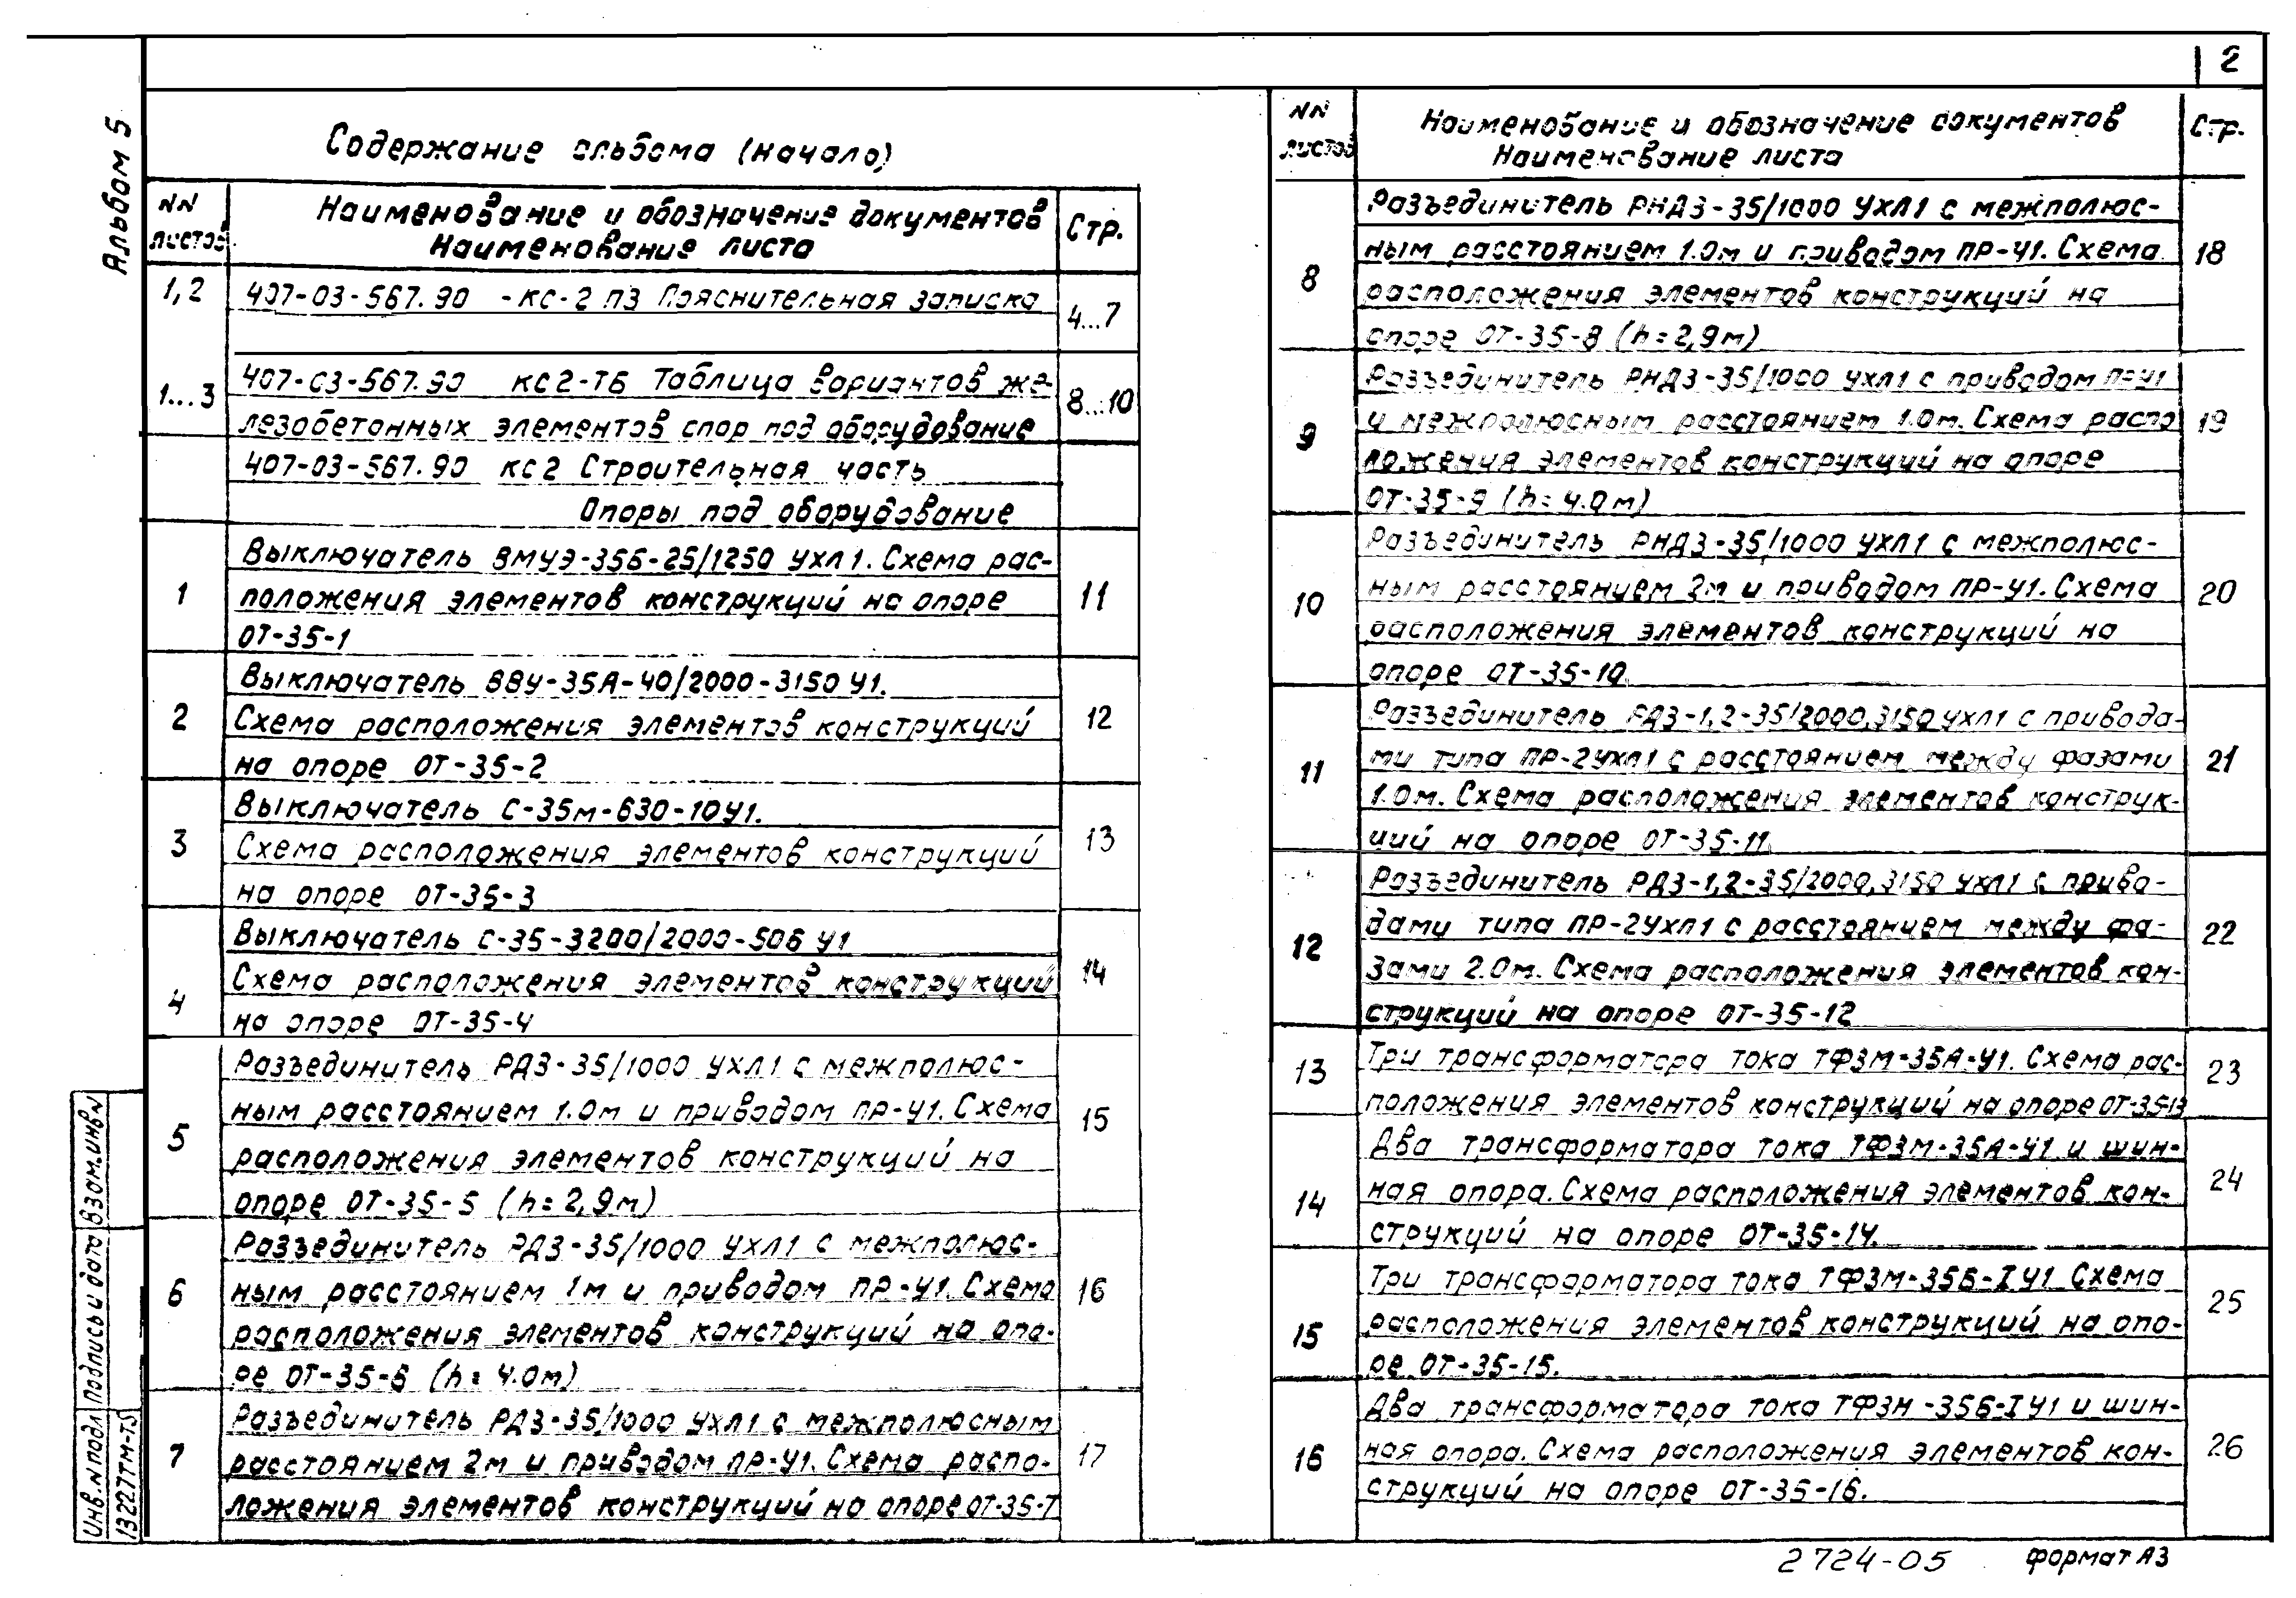 2
Альбом 5
Содержание альбома (начало)
NN листов
Наименование и обозначение документов
Наименование листа
Стр.
1,2
407-03-567.90 -КС-2 ПЗ Пояснительная записка
4...7
1...3
407-03-567.90 КС2-ТБ Таблица вариантов же-
лезобетонных элементов опор под оборудование
8...10
407-03-567.90 КС2 Строительная часть
Опоры под оборудование
1
Выключатель ВМУЭ-35Б-25/1250 УХЛ1. Схема рас-
положения элементов конструкций на опоре
ОТ-35-1
11
2
Выключатель ВВУ-35А-40/2000-3150 У1.
Схема расположения элементов конструкций
на опоре ОТ-35-2
12
3
Выключатель С-35м-630-10У1.
Схема расположения элементов конструкций
на опоре ОТ-35-3
13
4
Выключатель С-35-3200/2000-50Б У1
Схема расположения элементов конструкций
на опоре ОТ-35-4
14
5
Разъединитель РДЗ-35/1000 УХЛ1 с межполюс-
ным расстоянием 1.0м и приводом ПР-У1. Схема
расположения элементов конструкций на
опоре ОТ-35-5 (h=2,9м)
15
6
Разъединитель РДЗ-35/1000 УХЛ1 с межполюс-
ным расстоянием 1м и приводом ПР-У1. Схема
расположения элементов конструкций на опо-
ре ОТ-35-6 (h=4.0м)
16
7
Разъединитель РДЗ-35/1000 УХЛ1 с межполюсным
расстоянием 2м и приводом ПР-У1. Схема распо-
ложения элементов конструкций на опоре ОТ-35-7
17
NN
листов
Наименование и обозначение документов
Наименование листа
Стр.
8
Разъединитель РНДЗ-35/1000 УХЛ1 с межполюс-
ным расстоянием 1.0м и приводом ПР-У1. Схема
расположения элементов конструкций на
опоре ОТ-35-8 (h=2,9м)
18
9
Разъединитель РНДЗ-35/1000 УХЛ1 с приводом ПР-У1
и межполюсным расстоянием 1.0м. Схема распо
ложения элементов конструкций на опоре
ОТ-35-9 (h=4.0м)
19
10
Разъединитель РНДЗ-35/1000 УХЛ1 с межполюс-
ным расстоянием 2м и приводом ПР-У1. Схема
расположения элементов конструкций на
опоре ОТ-35-10
20
11
Разъединитель РДЗ-1,2-35/2000,3150 УХЛ1 с привода-
ми типа ПР-2УХЛ1 с расстоянием между фазами
1.0м. Схема расположения элементов конструк-
ций на опоре ОТ-35-11
21
12
Разъединитель РДЗ-1,2-35/2000,3150 УХЛ1 с приво-
дами типа ПР-2УХЛ1 с расстоянием между фа-
зами 2.0м. Схема расположения элементов кон-
струкций на опоре ОТ-35-12
22
13
Три трансформатора тока ТФЗМ-35А-У1. Схема рас-
положения элементов конструкций на опоре ОТ-35-13
23
14
Два трансформатора тока ТФЗМ-35А-У1 и шин-
ная опора. Схема расположения элементов кон-
струкций на опоре ОТ-35-14.
24
15
Три трансформатора тока ТФЗМ-35Б-I У1 Схема
расположения элементов конструкций на опо-
ре ОТ-35-15.
25
16
Два трансформатора тока ТФЗМ-35Б-I У1 и шин-
ная опора. Схема расположения элементов кон-
струкций на опоре ОТ-35-16.
26
Взам.инв N
Подпись и дата
Инв.N подл
13227тм-Т5
2724-05
формат А3